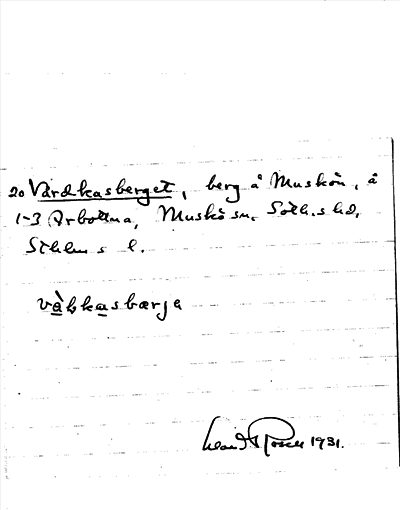 20 Vårdkasberget, berg å Muskön, å
1-3 Arbottna, Muskö sn. Soth.s hd,
Sthlms l.
vàḷkasbærjə
Rosell 1931.